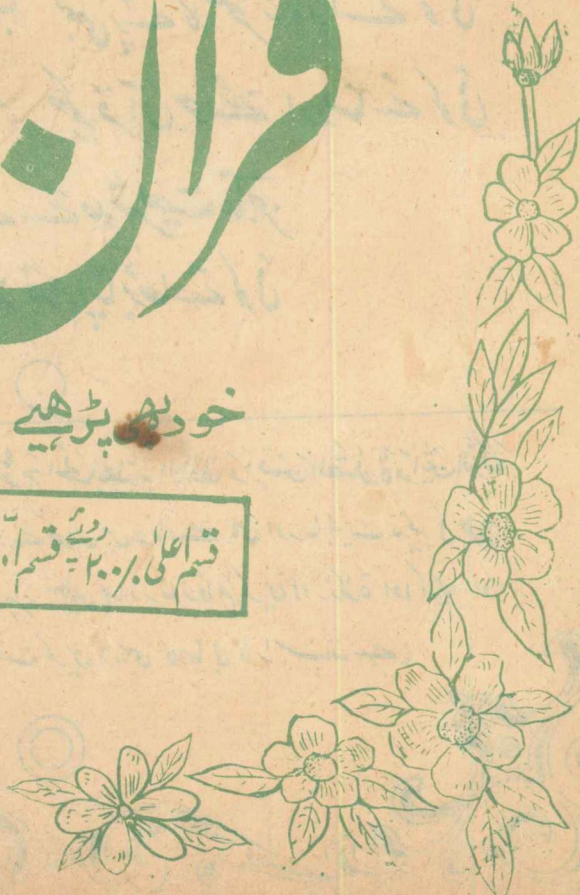 قرآن
خود بھی پڑھیے
قسم اعلیٰ ۲۰۰/۰ روپئے قسم